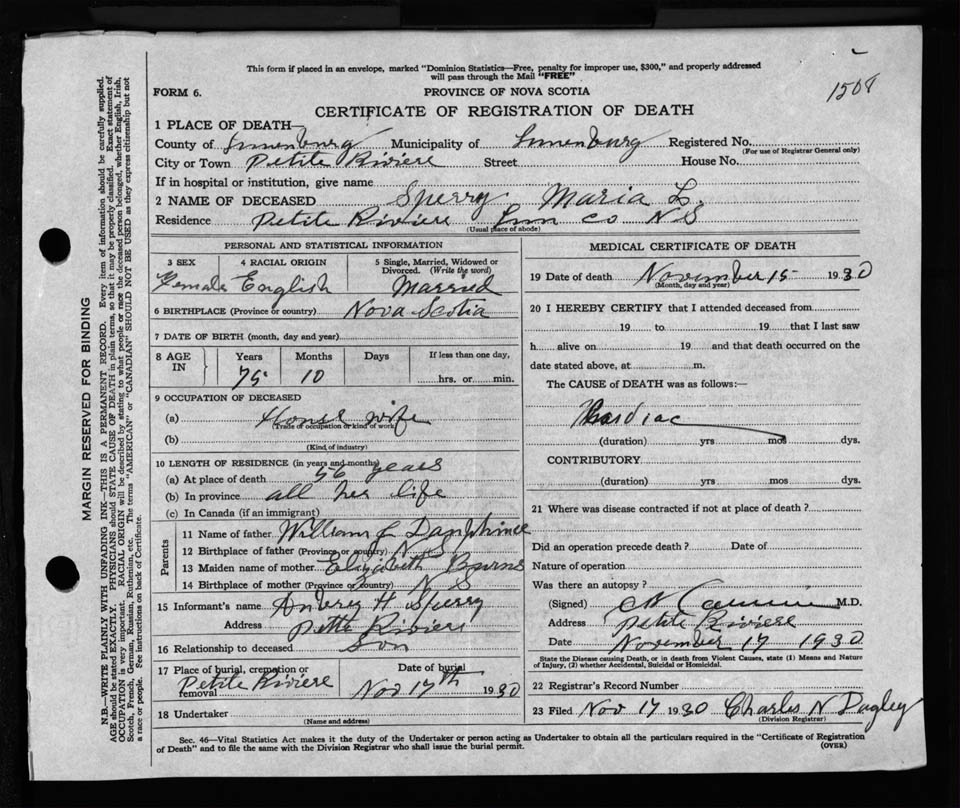 This form if placed in an envelope, marked "Dominion Statistics—Free, penalty for improper use, $300," and properly addressed
will pass through the Mail "FREE"
1508
FORM 6. PROVINCE OF NOVA SCOTIA
CERTIFICATE OF REGISTRATION OF DEATH
1 PLACE OF DEATH—
County of Lunenburg Municipality of Lunenburg Registered No.
(For use of Registrar General only)
City or Town Petite Riviere Street House No.
If in hospital or institution, give name
2 NAME OF DECEASED Sperry Maria L.
Residence Petite Riviere Lun Co N S
(Usual place of abode)
PERSONAL AND STATISTICAL INFORMATION
3 SEX 4 RACIAL ORIGIN 5 Single, Married, Widowed or
Divorced. (Write the word)
Female English Married
6 BIRTHPLACE (Province or country) Nova Scotia
7 DATE OF BIRTH (month, day and year)
8 AGE IN Years Months Days If less than one day,
75 10 hrs. or min.
9 OCCUPATION OF DECEASED
(a) House wife
(Trade or occupation or kind of work)
(b)
(Kind of industry)
10 LENGTH OF RESIDENCE (in years and months)
(a) At place of death 56 years
(b) In province all her life
(c) In Canada (if an immigrant)
Parents
11 Name of father William Dauphinee
12 Birthplace of father (Province or country) N S
13 Maiden name of mother Elizabeth Burns
14 Birthplace of mother (Province or country) N S
15 Informant's name Aubrey H Sperry
Address Petite Riviere
16 Relationship to deceased Son
17 Place of burial, cremation or
removal Petite Riviere
Date of burial
Nov 17th 1930
18 Undertaker
(Name and address)
MEDICAL CERTIFICATE OF DEATH
19 Date of death November 15 1930
(Month, day and year)
20 I HEREBY CERTIFY that I attended deceased from
19 to 19 that I last saw
h alive on 19 and that death occurred on the
date stated above, at m.
The CAUSE of DEATH was as follows:—
Cardiac
(duration) yrs mos dys.
CONTRIBUTORY
(duration) yrs mos dys.
21 Where was disease contracted if not at place of death?
Did an operation precede death? Date of
Nature of operation
Was there an autopsy?
(Signed) M.D.
Address Petite Riviere
Date November 17 1930
State the Disease causing Death, or in death from Violent Causes, state (1) Means and Nature
of Injury, (2) whether Accidental, Suicidal or Homicidal.
22 Registrar's Record Number
23 Filed Nov 17 1930 Charles N Dagley
(Division Registrar)
Sec. 46—Vital Statistics Act makes it the duty of the Undertaker or person acting as Undertaker to obtain all the particulars required in the "Certificate of Registration
of Death" and to file the same with the Division Registrar who shall issue the burial permit. (OVER)
MARGIN RESERVED FOR BINDING
N.B.—WRITE PLAINLY WITH UNFADING INK—THIS IS A PERMANENT RECORD. Every item of information should be carefully supplied.
AGE should be stated EXACTLY. PHYSICIANS should STATE CAUSE OF DEATH in plain terms, so that it may be properly classified. Exact statement of
OCCUPATION is very important. RACIAL ORIGIN will be described by stating to what people or race the deceased person belonged, whether English, Irish,
Scotch, French, German, Russian, Ruthenian, etc. The terms "AMERICAN" or "CANADIAN" SHOULD NOT BE USED as they express citizenship but not
a race or people. See instructions on back of Certificate.